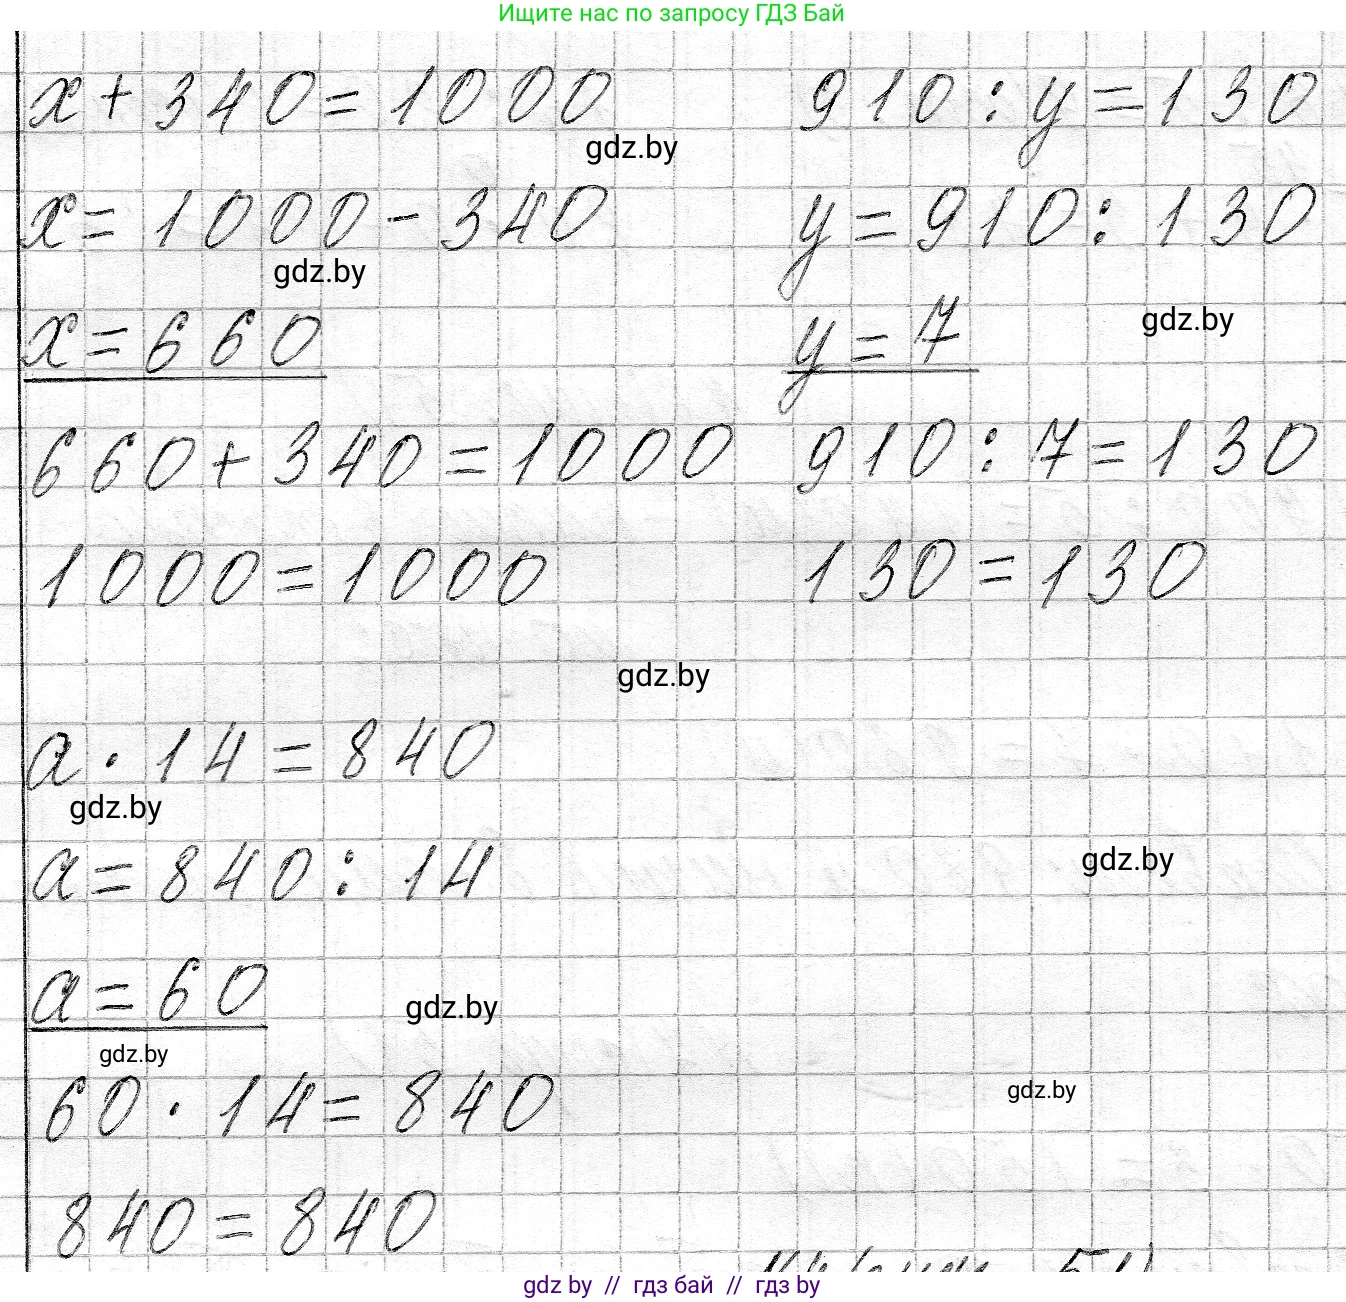 Ищите нас по запросу ГДЗ Бай
x + 340 = 1000
x = 1000 - 340
x = 660
660 + 340 = 1000
1000 = 1000
910 : y = 130
y = 910 : 130
y = 7
910 : 7 = 130
130 = 130
a · 14 = 840
a = 840 : 14
a = 60
60 · 14 = 840
840 = 840
gdz.by
gdz.by
gdz.by
gdz.by
gdz.by
gdz.by
gdz.by
gdz.by
gdz.by
gdz.by // гдз бай // гдз by